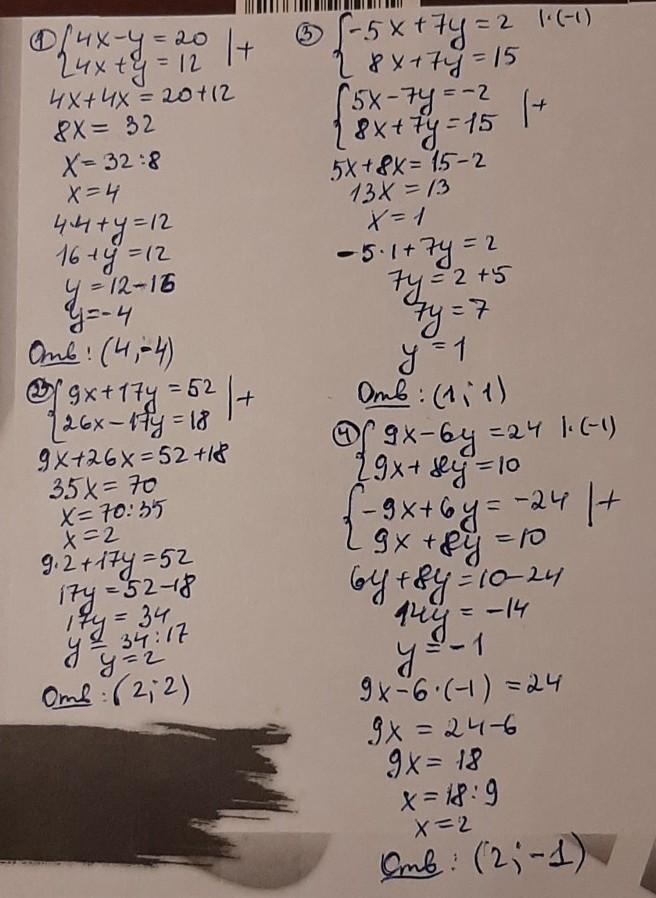 ① {4x-y=20 |+
{4x+y=12
4x+4x=20+12
8x=32
x=32:8
x=4
4·4+y=12
16+y=12
y=12-16
y=-4
Отв: (4;-4)
② {9x+17y=52 |+
{26x-17y=18
9x+26x=52+18
35x=70
x=70:35
x=2
9·2+17y=52
17y=52-18
17y=34
y=34:17
y=2
Отв: (2;2)
③ {-5x+7y=2 |·(-1)
{8x+7y=15
{5x-7y=-2 |+
{8x+7y=15
5x+8x=15-2
13x=13
x=1
-5·1+7y=2
7y=2+5
7y=7
y=1
Отв: (1;1)
④ {9x-6y=24 |·(-1)
{9x+8y=10
{-9x+6y=-24 |+
{9x+8y=10
6y+8y=10-24
14y=-14
y=-1
9x-6·(-1)=24
9x=24-6
9x=18
x=18:9
x=2
Отв: (2;-1)